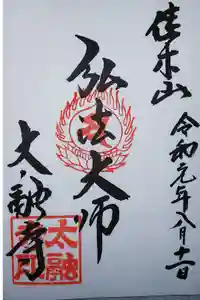 佳木山
令和元年八月十一日
弘法大師
太融寺
太融